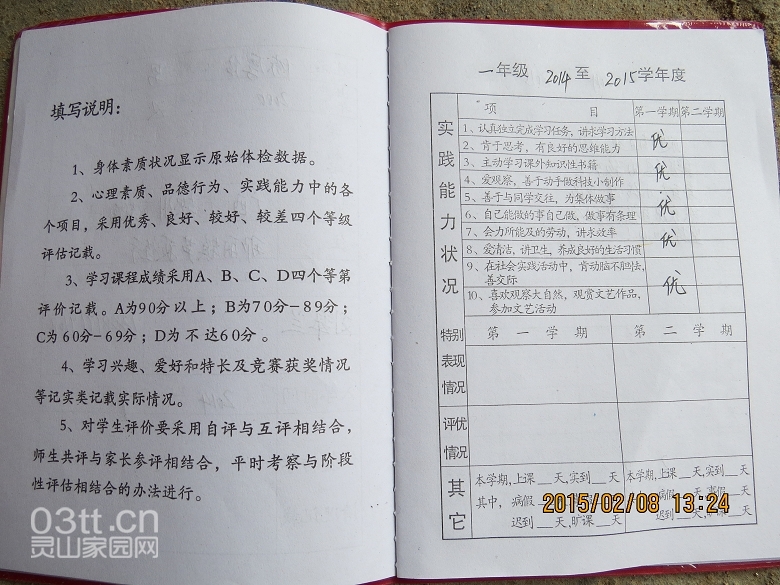 填写说明：
1、身体素质状况显示原始体检数据。
2、心理素质、品德行为、实践能力中的各
个项目，采用优秀、良好、较好、较差四个等级
评估记载。
3、学习课程成绩采用A、B、C、D四个等第
评价记载。A为90分以上；B为70分-89分；
C为60分-69分；D为不达60分。
4、学习兴趣、爱好和特长及竞赛获奖情况
等记实类记载实际情况。
5、对学生评价要采用自评与互评相结合，
师生共评与家长参评相结合，平时考察与阶段
性评估相结合的办法进行。
03tt.cn
灵山家园网
一年级 2014至 2015学年度
实践能力状况
项 目 第一学期 第二学期
1、认真独立完成学习任务，讲求学习方法
2、肯于思考，有良好的思维能力 优
3、主动学习课外知识性书籍
4、爱观察，善于动手做科技小制作 优
5、善于与同学交往，为集体做事
6、自己能做的事自己做，做事有条理 优
7、会力所能及的劳动，讲求效率
8、爱清洁，讲卫生，养成良好的生活习惯 优
9、在社会实践活动中，肯动脑不胆怯，
善交际
10、喜欢观察大自然，观赏文艺作品， 优
参加文艺活动
特别表现情况
第一学期 第二学期
评优情况
其它
本学期，上课__天，实到__天 本学期，上课__天，实到__天
其中，病假
迟到__天，旷课__天
2015/02/08 13:24